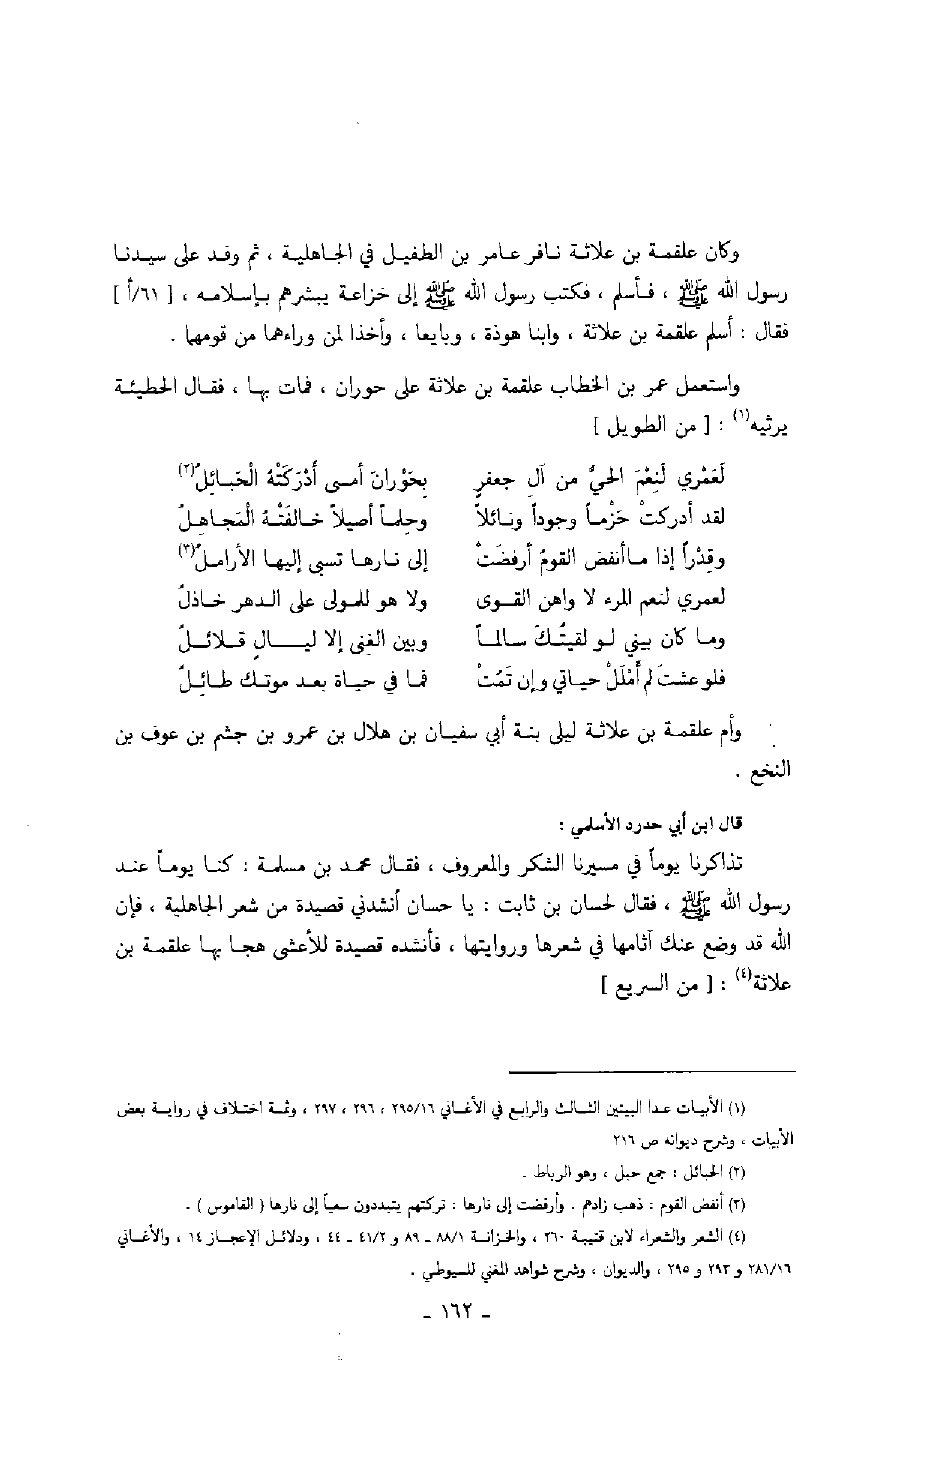 وكان علقمة بن علاثة نافر عامر بن الطفيل في الجاهلية ، ثم وفد على سيدنا
رسول الله ﷺ ، فأسلم ، فكتب رسول الله ﷺ إلى خزاعة يبشرهم بإسلامه ، [ ٦١/أ ]
فقال : أسلم علقمة بن علاثة ، وابنا هوذة ، وبايعا ، وأخذا لمن وراءهما من قومهما .
واستعمل عمر بن الخطاب علقمة بن علاثة على حوران ، فمات بها ، فقال الحطيئة
يرثيه(١) : [ من الطويل ]
لَعَمْري لَنِعْمَ الحيُّ من آل جعفرٍ بِحَوْرانَ أمسى أدْرَكَتْهُ الْحَبَائِلُ(٢)
لقد أدركتْ حَزْماً وجوداً ونائلاً وحِلماً أصيلاً خالفَتْهُ الْمَجَاهِلُ
وقِدْراً إذا ماأنفض القومُ أرفضَتْ إلى نارها تسعى إليها الأراملُ(٣)
لعمري لنعم المرء لا واهن القوى ولا هو للمولى على الدهر خاذلُ
وما كان بيني لو لقيتُكَ سالماً وبين الغنى إلا ليالٍ قلائلُ
فلو عشتَ لم أَمْلَلْ حياتي وإن تَمُتْ فما في حياة بعد موتك طائلُ
وأم علقمة بن علاثة ليلى بنة أبي سفيان بن هلال بن عمرو بن جشم بن عوف بن
النخع .
قال ابن أبي حدرد الأسلمي :
تذاكرنا يوماً في مسيرنا الشكر والمعروف ، فقال محمد بن مسلمة : كنا يوماً عند
رسول الله ﷺ ، فقال لحسان بن ثابت : يا حسان أنشدني قصيدة من شعر الجاهلية ، فإن
الله قد وضع عنك آثامها في شعرها وروايتها ، فأنشده قصيدة للأعشى هجا بها علقمة بن
علاثة(٤) : [ من السريع ]
(١) الأبيات عدا البيتين الثالث والرابع في الأغاني ٢٩٥/١٦ ، ٢٩٦ ، ٢٩٧ ، وثمة اختلاف في رواية بعض
الأبيات ، وشرح ديوانه ص ٢١٦
(٢) الحبائل : جمع حبل ، وهو الرباط .
(٣) أنفض القوم : ذهب زادهم . وأرفضت إلى نارها : تركتهم يتبددون سعياً إلى نارها ( القاموس ) .
(٤) الشعر والشعراء لابن قتيبة ٢٦٠ ، والخزانة ٨٨/١ ـ ٨٩ و ٤١/٢ ـ ٤٤ ، ودلائل الإعجاز ١٤ ، والأغاني
٢٨١/١٦ و ٢٩٣ و ٢٩٥ ، والديوان ، وشرح شواهد المغني للسيوطي .
ـ ١٦٢ ـ